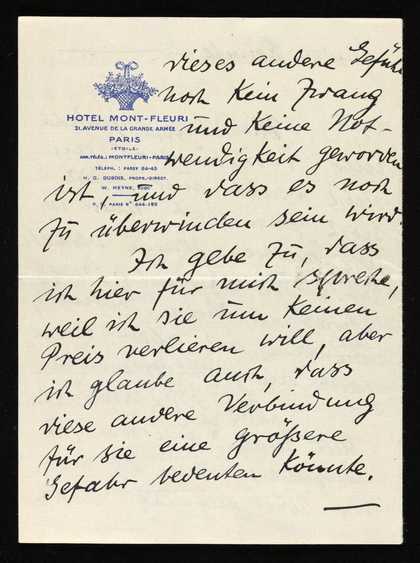 HOTEL MONT-FLEURI
21, AVENUE DE LA GRANDE ARMÉE
PARIS
-ETOILE-
ADR. TÉLÉG.: MONTFLEURI-PARIS
TÉLÉPH.: PASSY 06-43
H. G. DUBOIS, PROPR.-DIRECT.
W. MEYNE, SUCC
PARIS N° 244-192
dieses andere Gefühl
noch kein Zwang
und keine Not-
wendigkeit geworden
ist, und dass es noch
zu überwinden sein wird.
Ich gebe zu, dass
ich hier für mich spreche,
weil ich sie um keinen
Preis verlieren will, aber
ich glaube auch, dass
diese andere Verbindung
für sie eine größere
Gefahr bedeuten könnte.